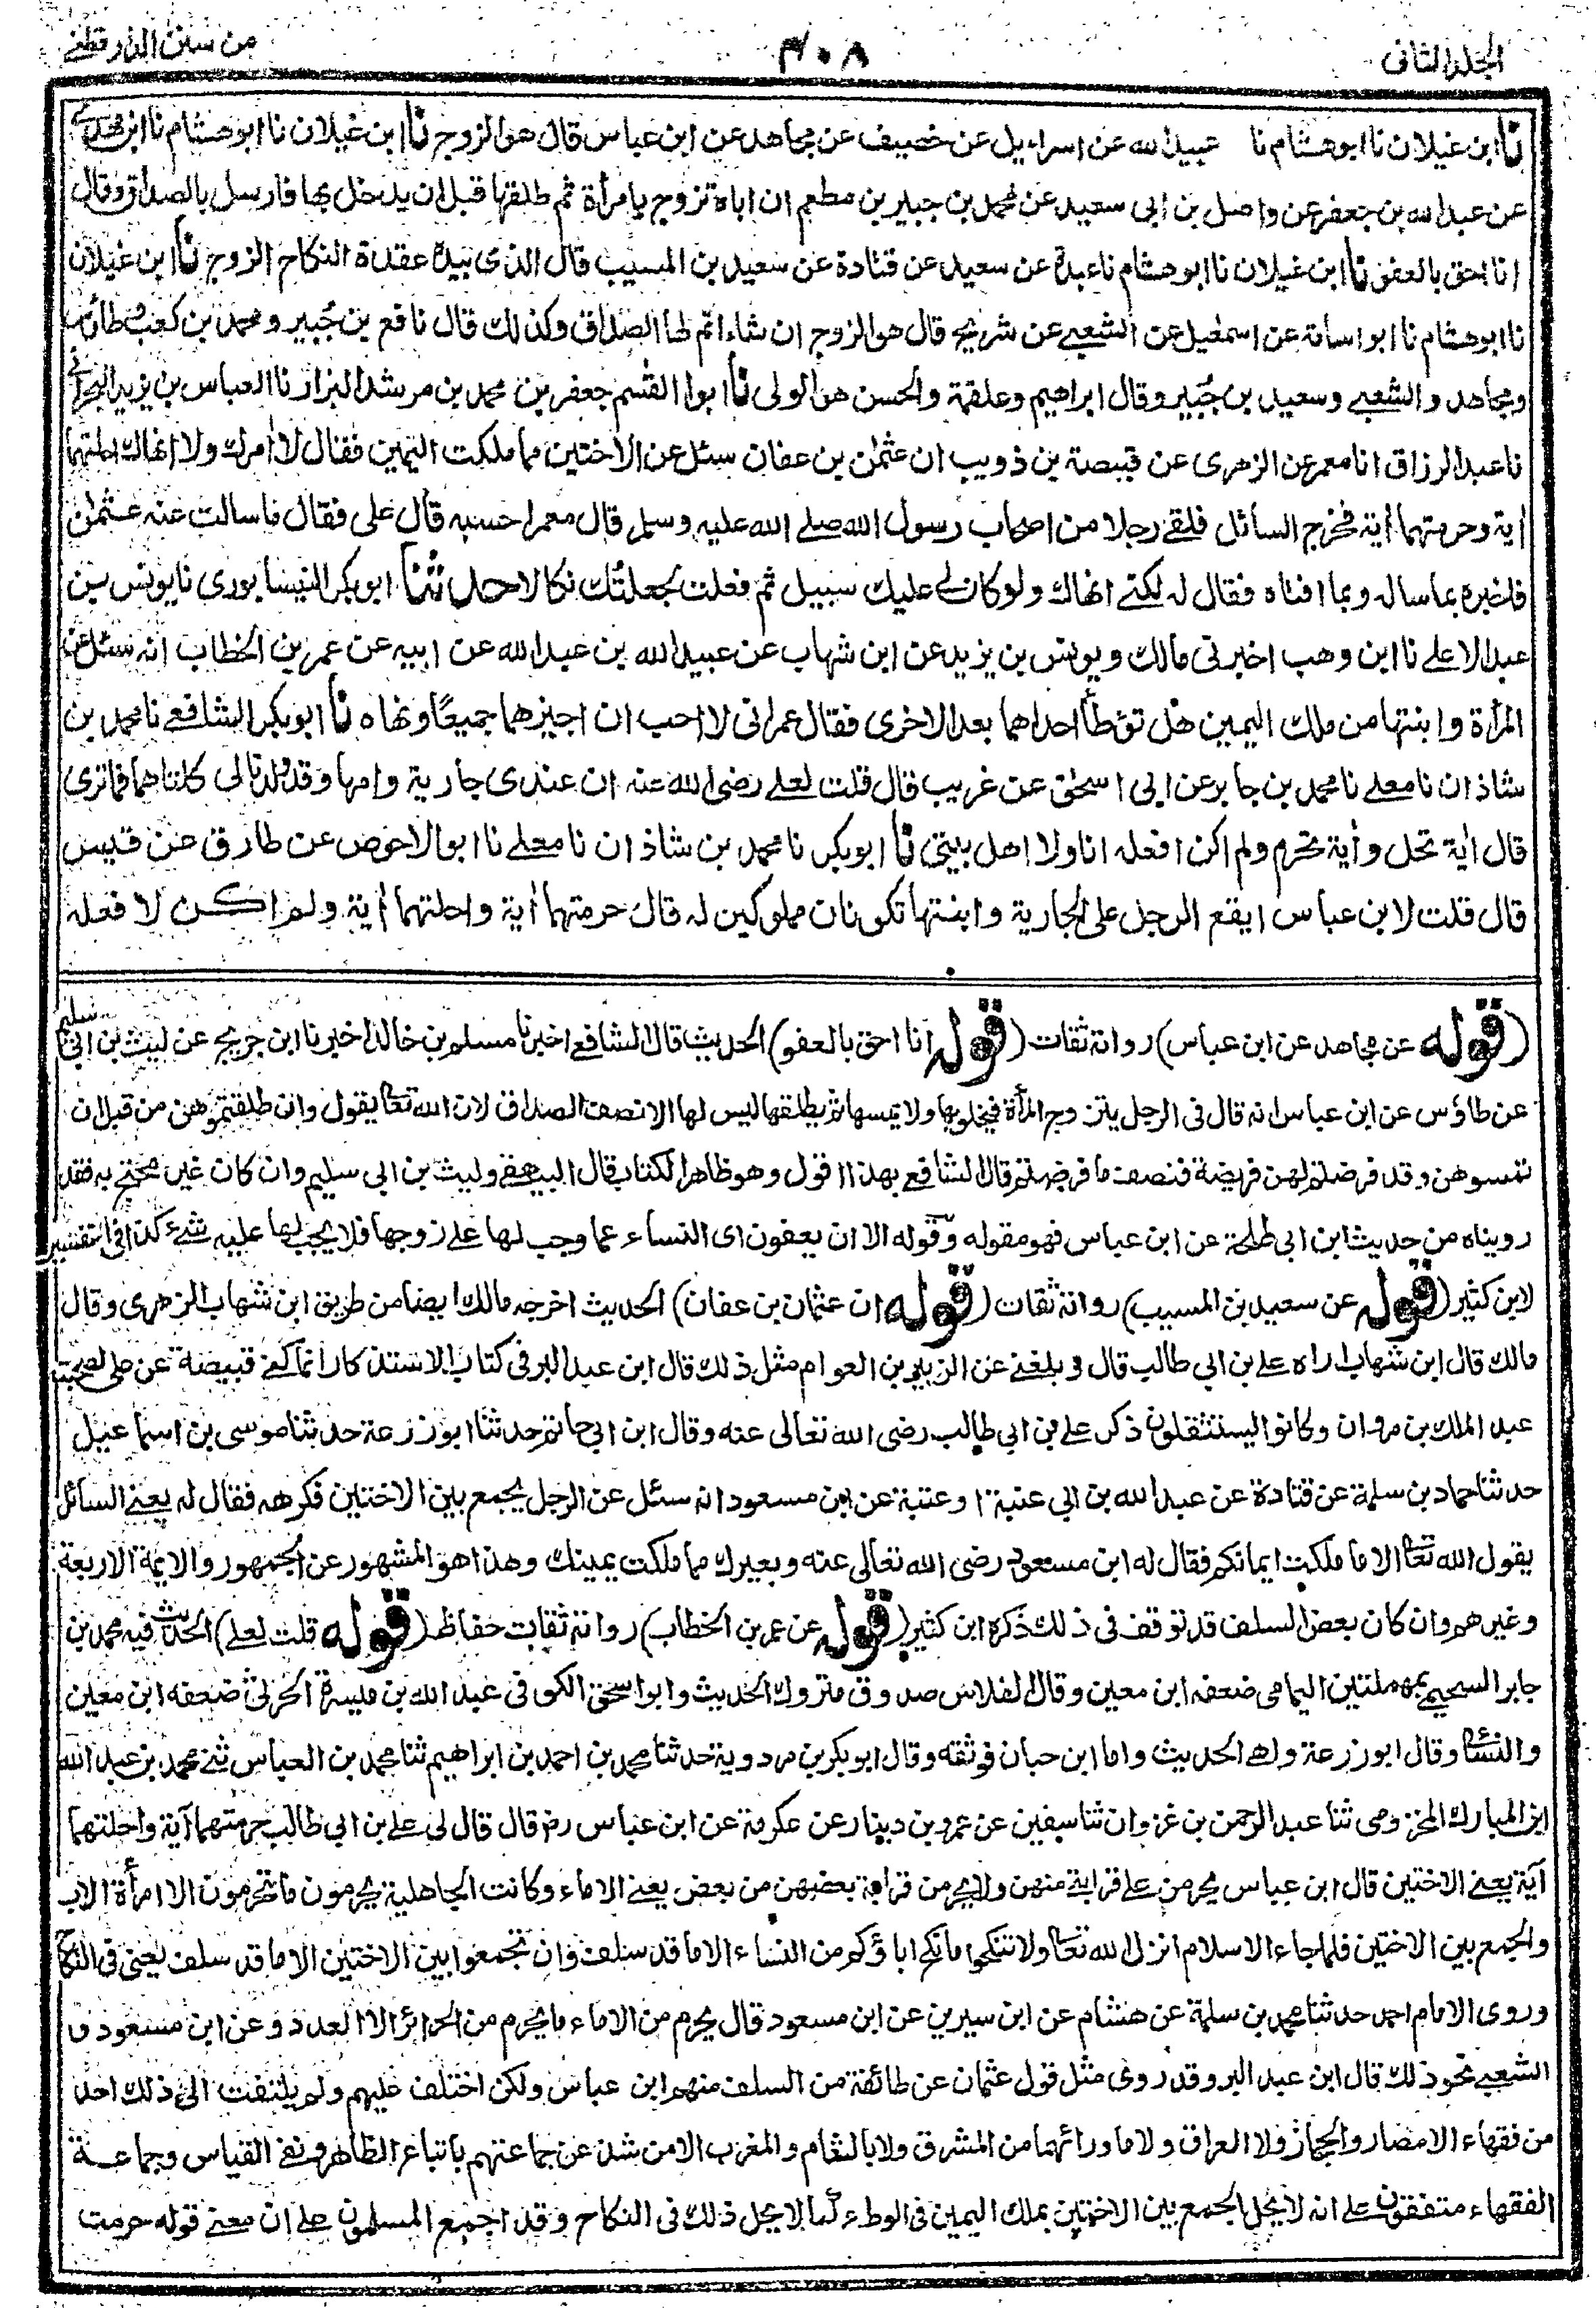 الجلد الثانى
٤٠٨
من سنن الدارقطنے
نا ابن غيلان نا ابو هشام نا عبيد الله عن اسراءيل عن خصيف عن مجاهد عن ابن عباس قال هو الزوج نا ابن غيلان نا ابو هشام نا ابن مهدى
عن عبد الله بن جعفر عن واصل بن ابى سعيد عن محمد بن جبير بن مطعم ان اباه تزوج بامرأة ثم طلقها قبل ان يدخل بها فارسل بالصداق وقال
انا احق بالعفو نا ابن غيلان نا ابو هشام نا عبدة عن سعيد عن قتادة عن سعيد بن المسيب قال الذى بيده عقدة النكاح الزوج نا ابن غيلان
نا ابو هشام نا ابو اسامة عن اسمعيل عن الشعبے عن شريح قال هو الزوج ان شاء اتم لها الصداق وكذلك قال نافع بن جُبير و محمد بن كعب و طاؤس
و مجاهد و الشعبے و سعيد بن جُبير و قال ابراهيم و علقمة و الحسن هو الولى نا ابو القسم جعفر بن محمد بن مرشد البزار نا العباس بن يزيد البحرانے
نا عبد الرزاق انا معمر عن الزهرى عن قبيصة بن ذويب ان عثمن بن عفان سئل عن الاختين مما ملكت اليمين فقال لا امرك ولا انهاك احلتهما
اٰية وحرمتهما اٰية فخرج السائل فلقے رجلا من اصحاب رسول الله صلے الله عليه وسلم قال معمر احسبه قال على فقال ما سالت عنه عثمٰن
فاخبره بما ساله وبما افتاه فقال له لكنے انهاك ولو كان لے عليك سبيل ثم فعلت لجعلتك نكالا حدثنا ابو بكر النيسابورى نا يونس بن
عبد الاعلے نا ابن وهب اخبرنى مالك و يونس بن يزيد عن ابن شهاب عن عبيد الله بن عبد الله عن ابيه عن عمر بن الخطاب انه سئل عن
المرأة وابنتها من ملك اليمين هل تؤطأ احداهما بعد الاخرى فقال عمر انى لا احب ان اجيزهما جميعًا ونهاه نا ابو بكر الشافعے نا محمد بن
شاذان نا معلے نا محمد بن جابر عن ابى اسحٰق عن غريب قال قلت لعلے رضى الله عنه ان عندى جارية وامها وقد ولدتا لى كلتاهما فما ترى
قال اٰية تحل واٰية تحرم ولم اكن افعله انا ولا اهل بيتى نا ابو بكر نا محمد بن شاذان نا معلے نا ابو الاحوص عن طارق عن قيس
قال قلت لابن عباس ايقع الرجل على الجارية وابنتها تكونان مملوكين له قال حرمتهما اٰية واحلتهما اٰية ولم اكن لا فعله
(قوله عن مجاهد عن ابن عباس) رواته ثقات (قوله انا احق بالعفو) الحديث قال الشافعے اخبرنا مسلم بن خالد اخبرنا ابن جريج عن ليث بن ابى سليم
عن طاؤس عن ابن عباس انه قال فى الرجل يتزوج المرأة فيخلو بها ولا يمسها ثم يطلقها ليس لها الا نصف الصداق لان الله تعالى يقول وان طلقتموهن من قبل ان
تمسوهن وقد فرضتم لهن فريضة فنصف ما فرضتم قال الشافعے بهذا اقول وهو ظاهر الكتاب قال البيهقے وليث بن ابى سليم وان كان غير محتج به فقد
رويناه من حديث ابن ابى طلحة عن ابن عباس فهو مقوله وقوله الا ان يعفون اى النساء عما وجب لها علے زوجها فلا يجب لها عليه شئ كذا فى التفسير
لابن كثير (قوله عن سعيد بن المسيب) رواته ثقات (قوله ان عثمان بن عفان) الحديث اخرجه مالك ايضا من طريق ابن شهاب الزهرى وقال
مالك قال ابن شهاب اراه علے بن ابى طالب قال و بلغنے عن الزبير بن العوام مثل ذلك قال ابن عبد البر فى كتاب الاستذكار انما كنى قبيصة عن على لصحبته
عبد الملك بن مروان وكانوا يستثقلون ذكر علے بن ابى طالب رضى الله تعالى عنه وقال ابن ابى حاتم حدثنا ابو زرعة حدثنا موسى بن اسماعيل
حدثنا حماد بن سلمة عن قتادة عن عبد الله بن ابى عنبة او عتبة عن ابن مسعود انه سئل عن الرجل يجمع بين الاختين فكرهه فقال له يعنے السائل
يقول الله تعالى الا ما ملكت ايمانكم فقال له ابن مسعود رضى الله تعالى عنه وبعيرك مما ملكت يمينك وهذا هو المشهور عن الجمهور والايمة الاربعة
وغيرهم وان كان بعض السلف قد توقف فى ذلك ذكره ابن كثير (قوله عن عمر بن الخطاب) رواته ثقات حفاظ (قوله قلت لعلے) الحديث فيه محمد بن
جابر السحيمے بمهملتين اليمامى ضعفه ابن معين وقال الفلاس صدوق متروك الحديث وابو اسحق الكوفى عبد الله بن ميسرة الحرثى ضعفه ابن معين
والنسائى وقال ابو زرعة واهے الحديث واما ابن حبان فوثقه وقال ابو بكر بن مردوية حدثنا محمد بن احمد بن ابراهيم ثنا محمد بن العباس ثنے محمد بن عبد الله
ابن المبارك المخزومى ثنا عبد الرحمن بن غزوان ثنا سفين عن عمرو بن دينار عن عكرمة عن ابن عباس رض قال قال لى علے بن ابى طالب حرمتهما آية واحلتهما
آية يعنے الاختين قال ابن عباس يحرمن علے قرابتى منهن ولا يحرمن قرابة بعضهن من بعض يعنے الاماء وكانت الجاهلية يحرمون ما تحرمون الا امرأة الاب
والجمع بين الاختين فلما جاء الاسلام انزل الله تعالى ولا تنكحوا ما نكح اباؤكم من النساء الا ما قد سلف وان تجمعوا بين الاختين الا ما قد سلف يعنى فى النكاح
وروى الامام احمد حدثنا محمد بن سلمة عن هشام عن ابن سيرين عن ابن مسعود قال يحرم من الاماء ما يحرم من الحرائر الا العدد وعن ابن مسعود و
الشعبے نحو ذلك قال ابن عبد البر وقد روى مثل قول عثمان عن طائفة من السلف منهم ابن عباس ولكن اختلف عليهم ولم يلتفت الى ذلك احد
من فقهاء الامصار والحجاز ولا العراق ولا ما ورائهما من المشرق ولا بالشام والمغرب الا من شذ عن جماعتهم باتباع الظاهر ونفے القياس وجماعة
الفقهاء متفقون علے انه لا يحل الجمع بين الاختين بملك اليمين فى الوطء كما لا يحل ذلك فى النكاح وقد اجمع المسلمون علے ان معنے قوله حرمت